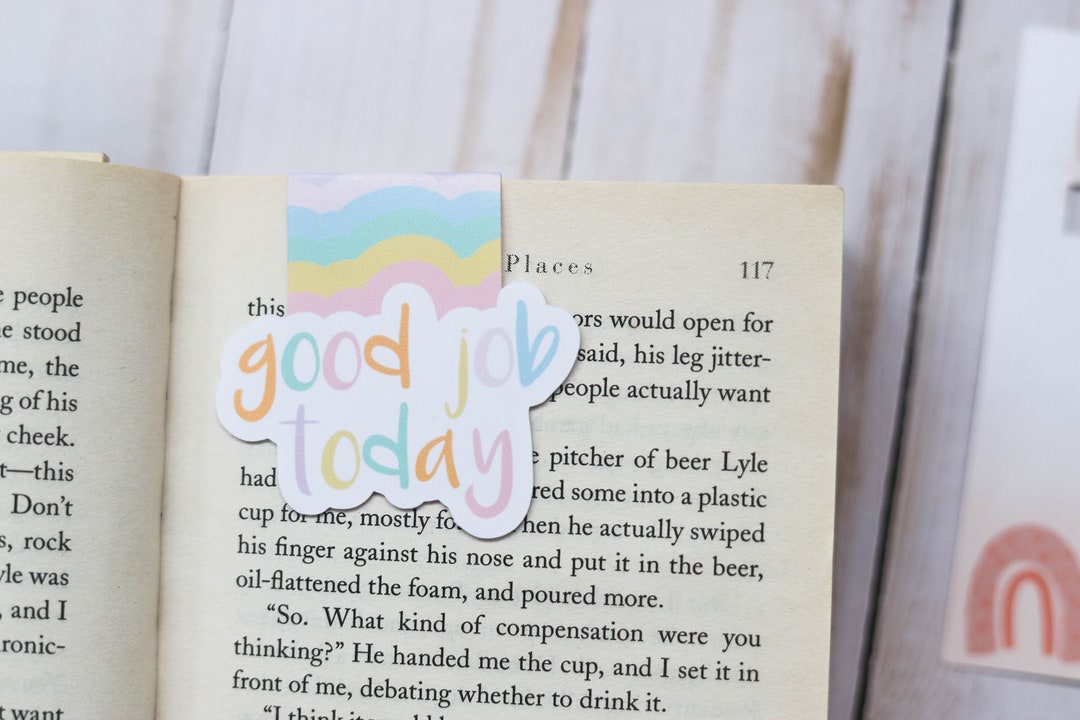 e people
e stood
me, the
g of his
cheek.
t—this
Don't
s, rock
yle was
, and I
ronic-
t want
Places 117
this
ors would open for
said, his leg jitter-
people actually want
e pitcher of beer Lyle
had
red some into a plastic
cup for me, mostly fo
hen he actually swiped
his finger against his nose and put it in the beer,
oil-flattened the foam, and poured more.
“So. What kind of compensation were you
thinking?” He handed me the cup, and I set it in
front of me, debating whether to drink it.
“I think it would
good job
today